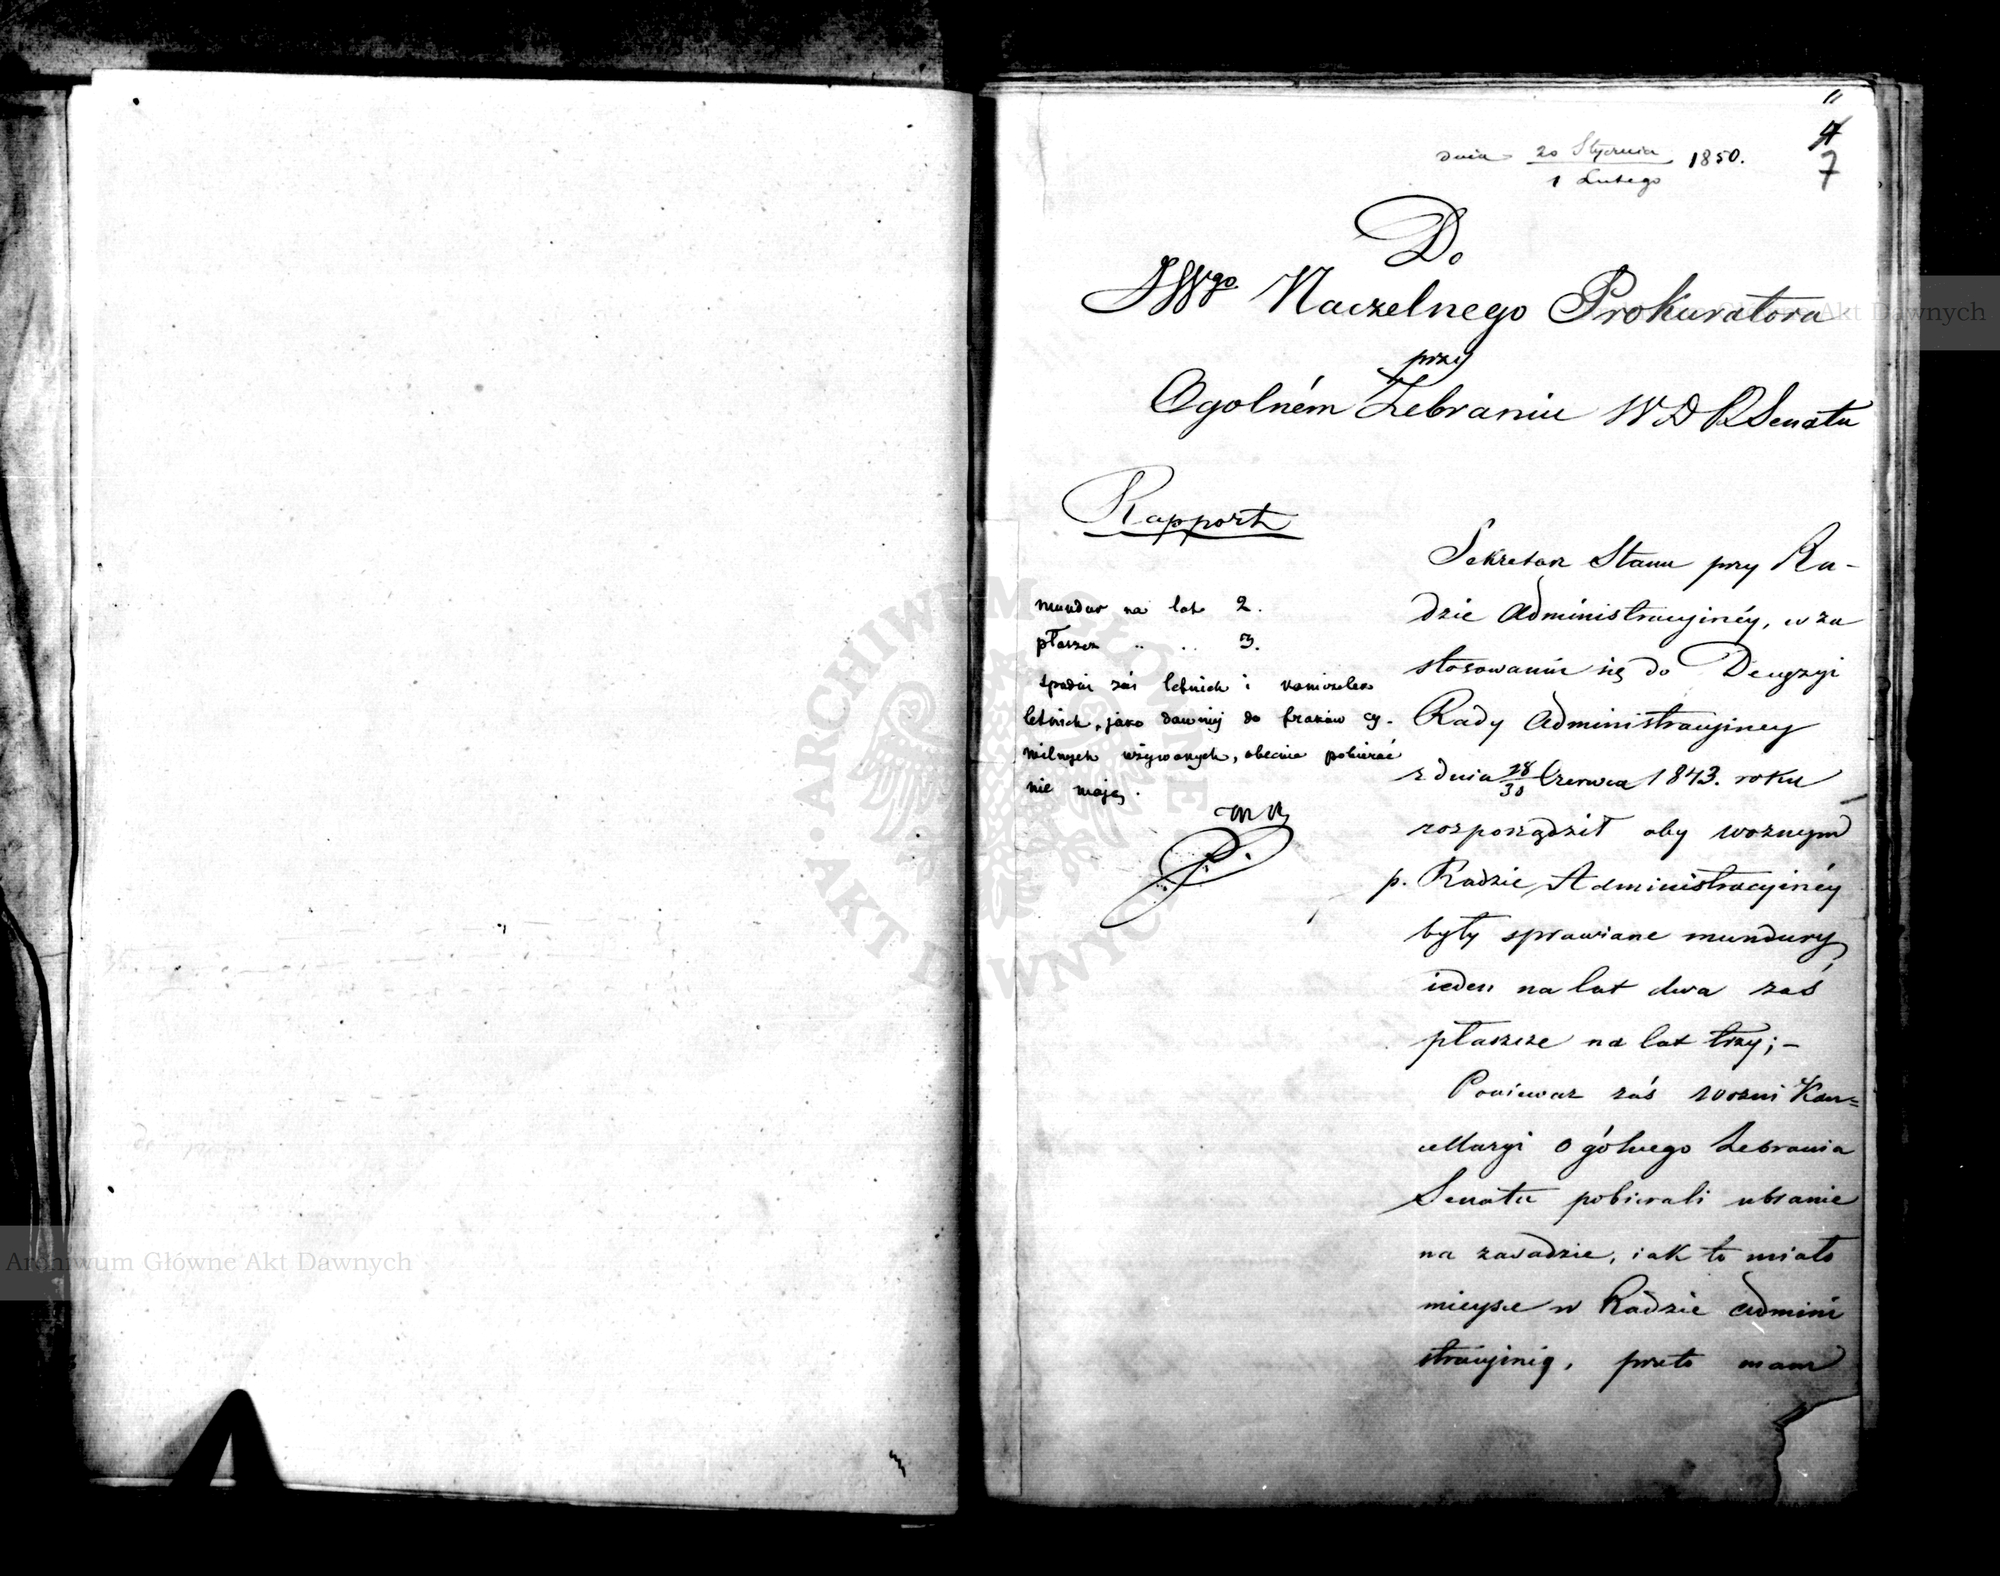 11
4
7
dnia 20 Stycznia / 1 Lutego 1850.
Do
JWgo Naczelnego Prokuratora
przy
Ogolném Zebraniu WDR Senatu
Rapport
mundur na lat 2.
płaszcz " .. 3.
spodni zaś letnich i kamizelek
letnich, jako dawniej do fraków cy-
wilnych używanych, obecnie pobierać
nie mają.
Sekretarz Stanu przy Ra-
dzie Administracyjnéy, w za
stosowaniu się do Decyzyi
Rady Administracyjney
z dnia 18/30 Czerwca 1843. roku
rozporządził aby woznym
p. Radzie Administracyinéy
były sprawiane mundury
ieden na lat dwa zaś
płaszcze na lat trzy; -
Poniewaz zaś wozni Kan=
cellaryi Ogólnego Zebrania
Senatu pobierali ubranie
na zasadzie, iak to miało
mieysce w Radzie Admini
stracyjnéy, przeto mam
Archiwum Główne Akt Dawnych
Akt Dawnych
ARCHIWUM GŁÓWNE AKT DAWNYCH